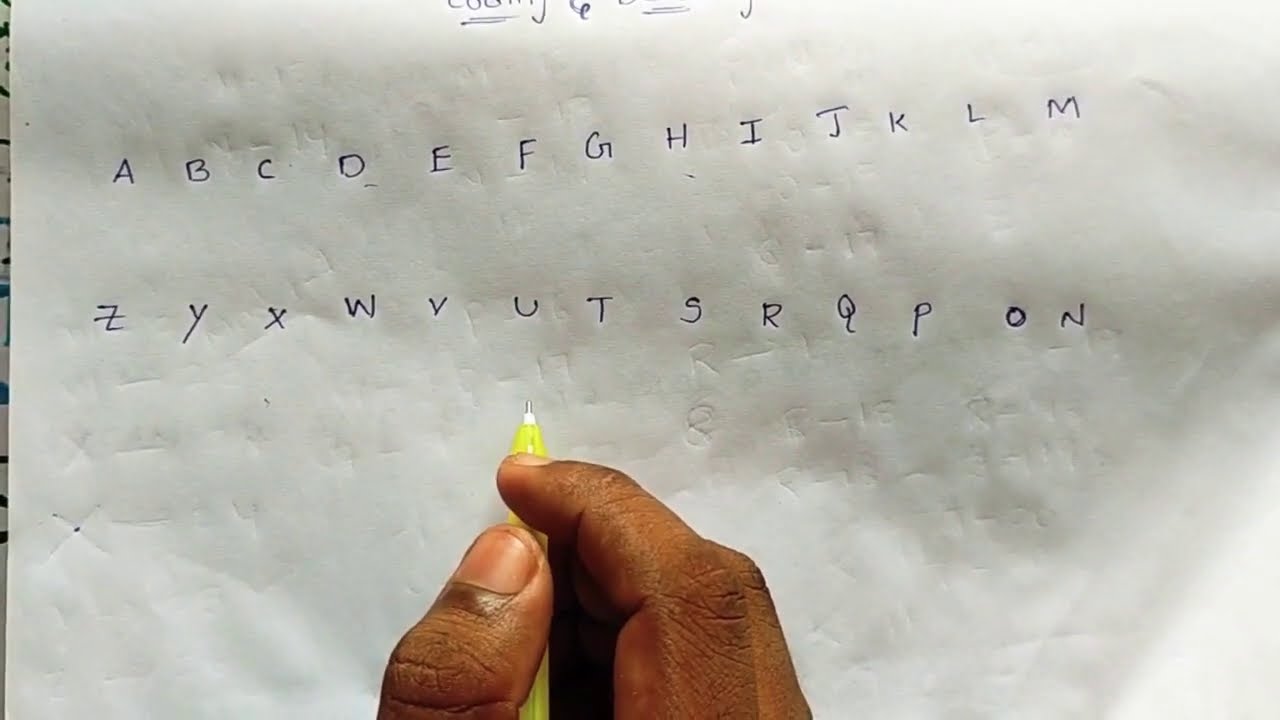 A B C D E F G H I J K L M
Z Y X W V U T S R Q P O N